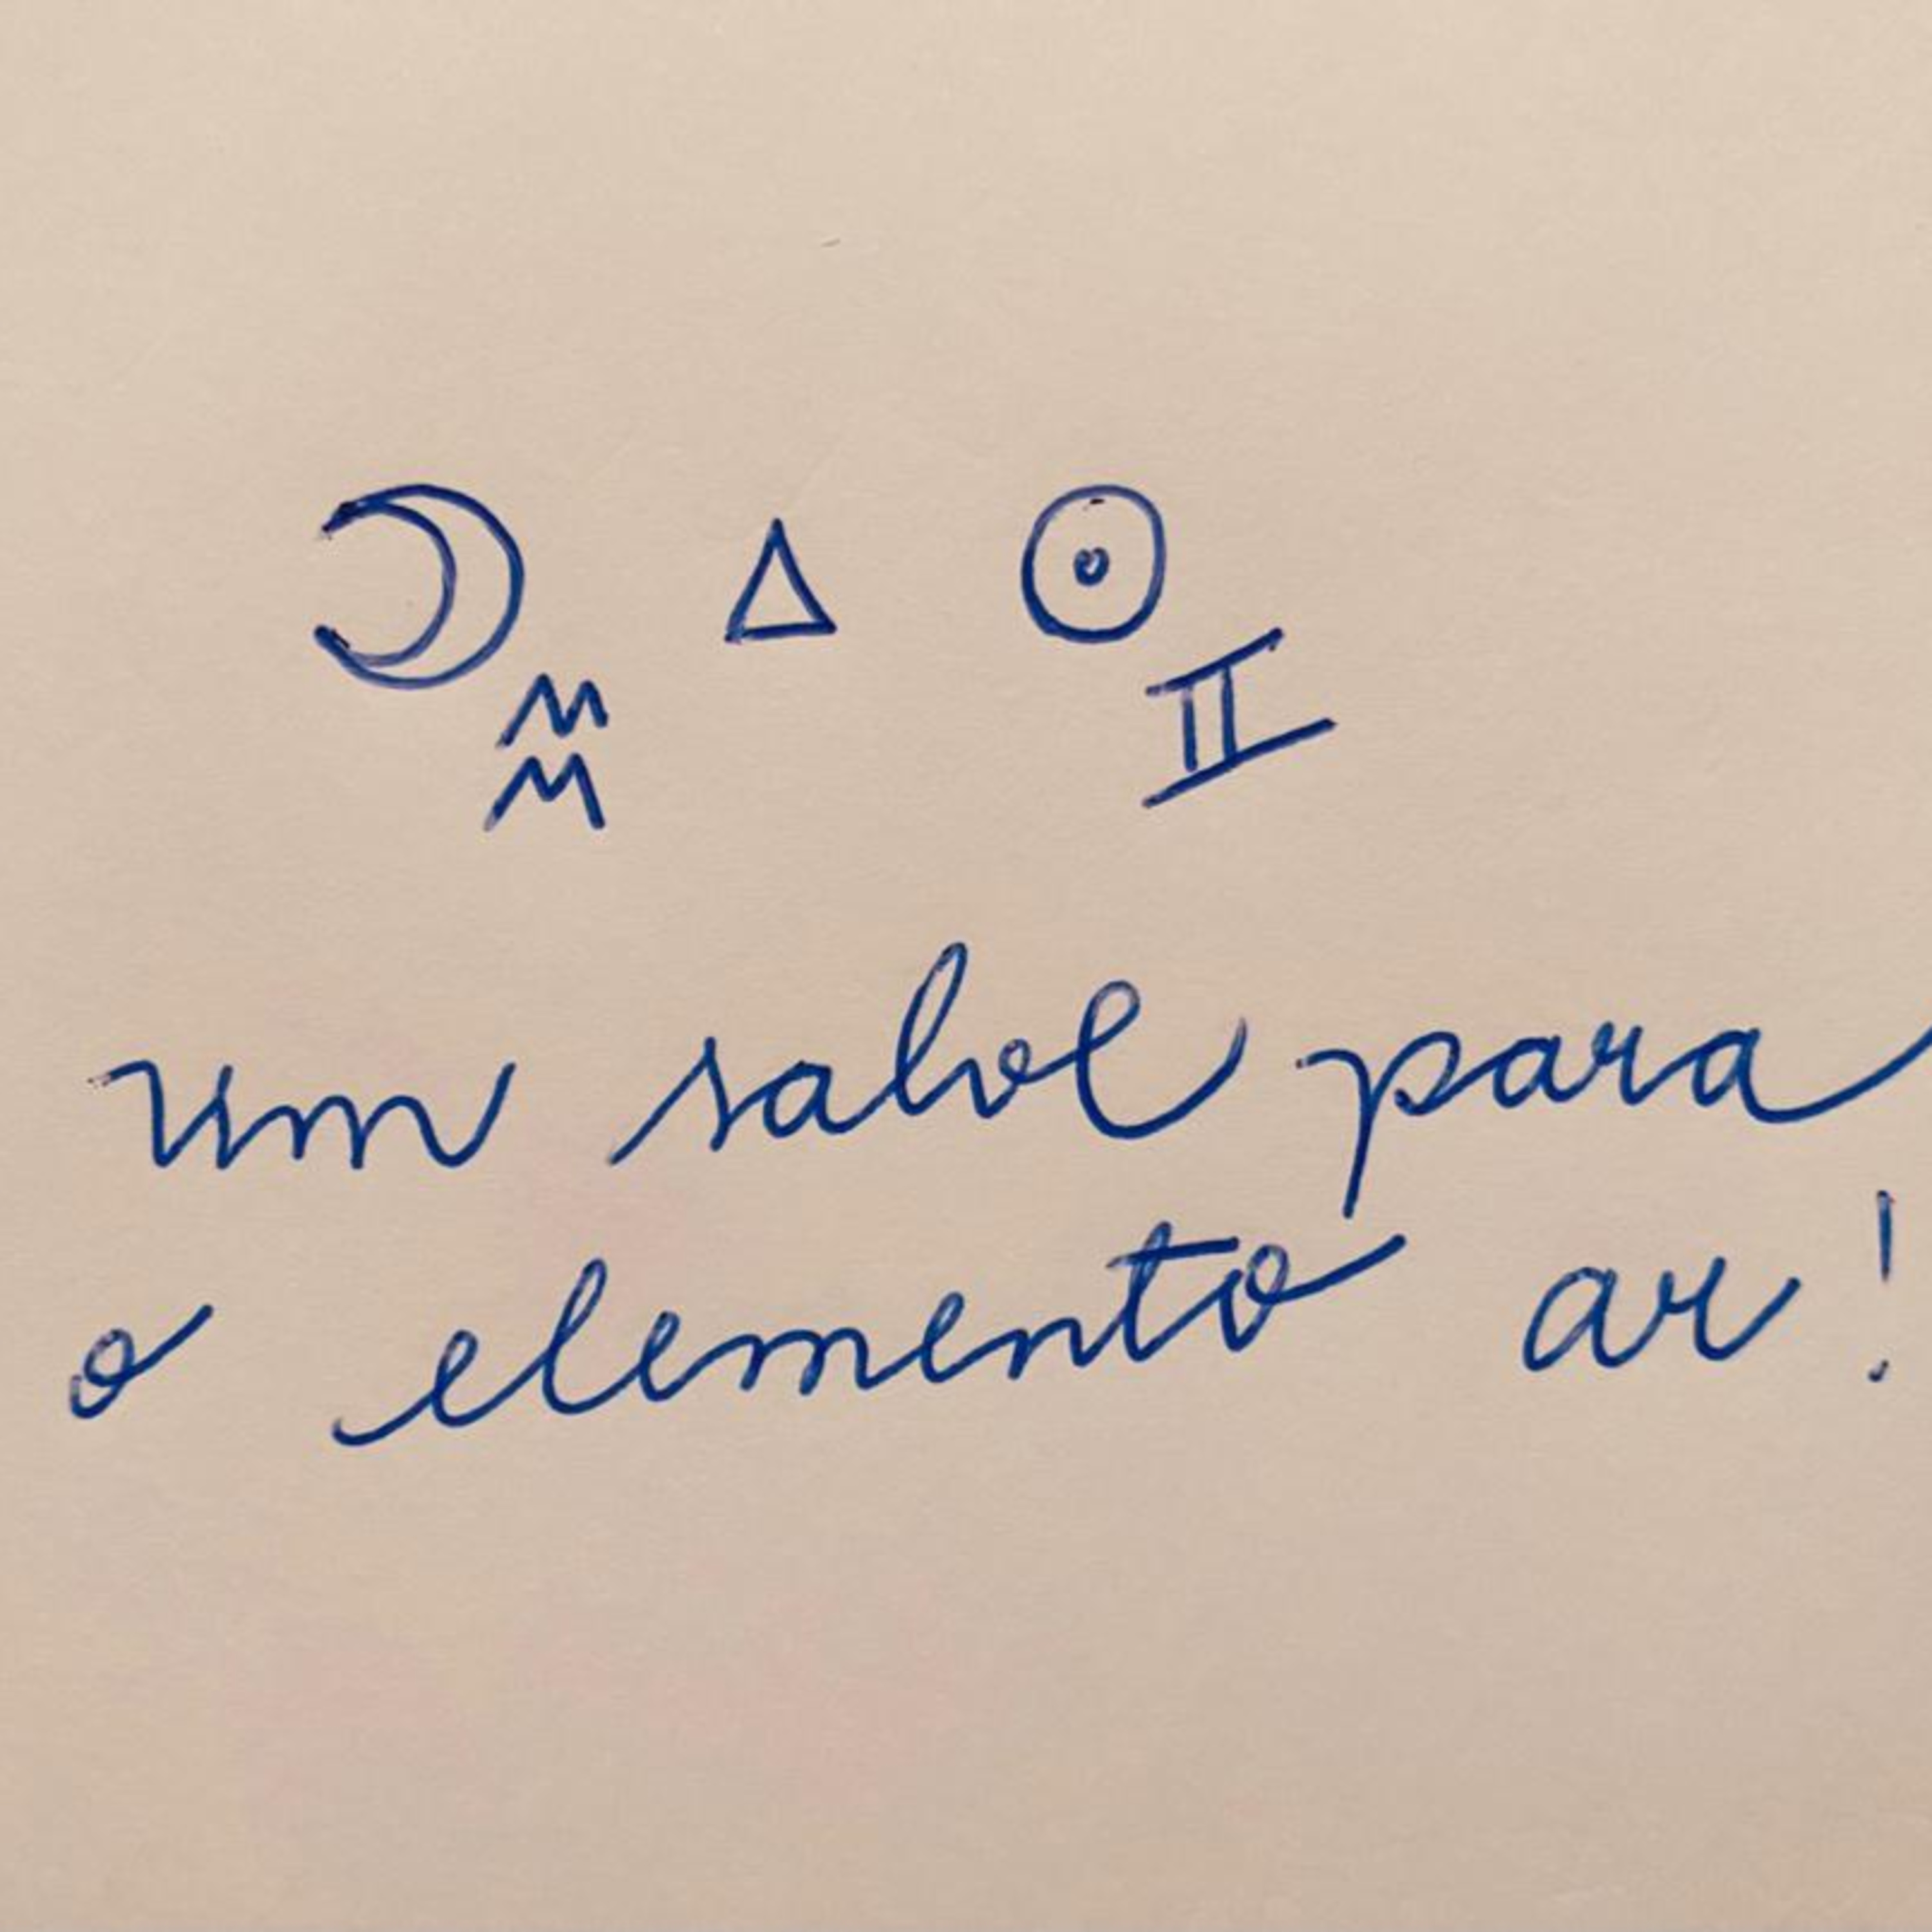 ☽ △ ☉
♒ ♊
um salve para
o elemento ar!